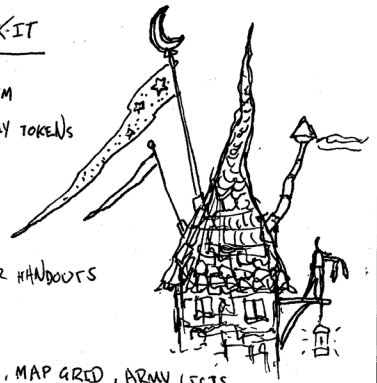 K-IT
M
Y TOKENS
R HANDOUTS
, MAP GRID, ARMY LISTS